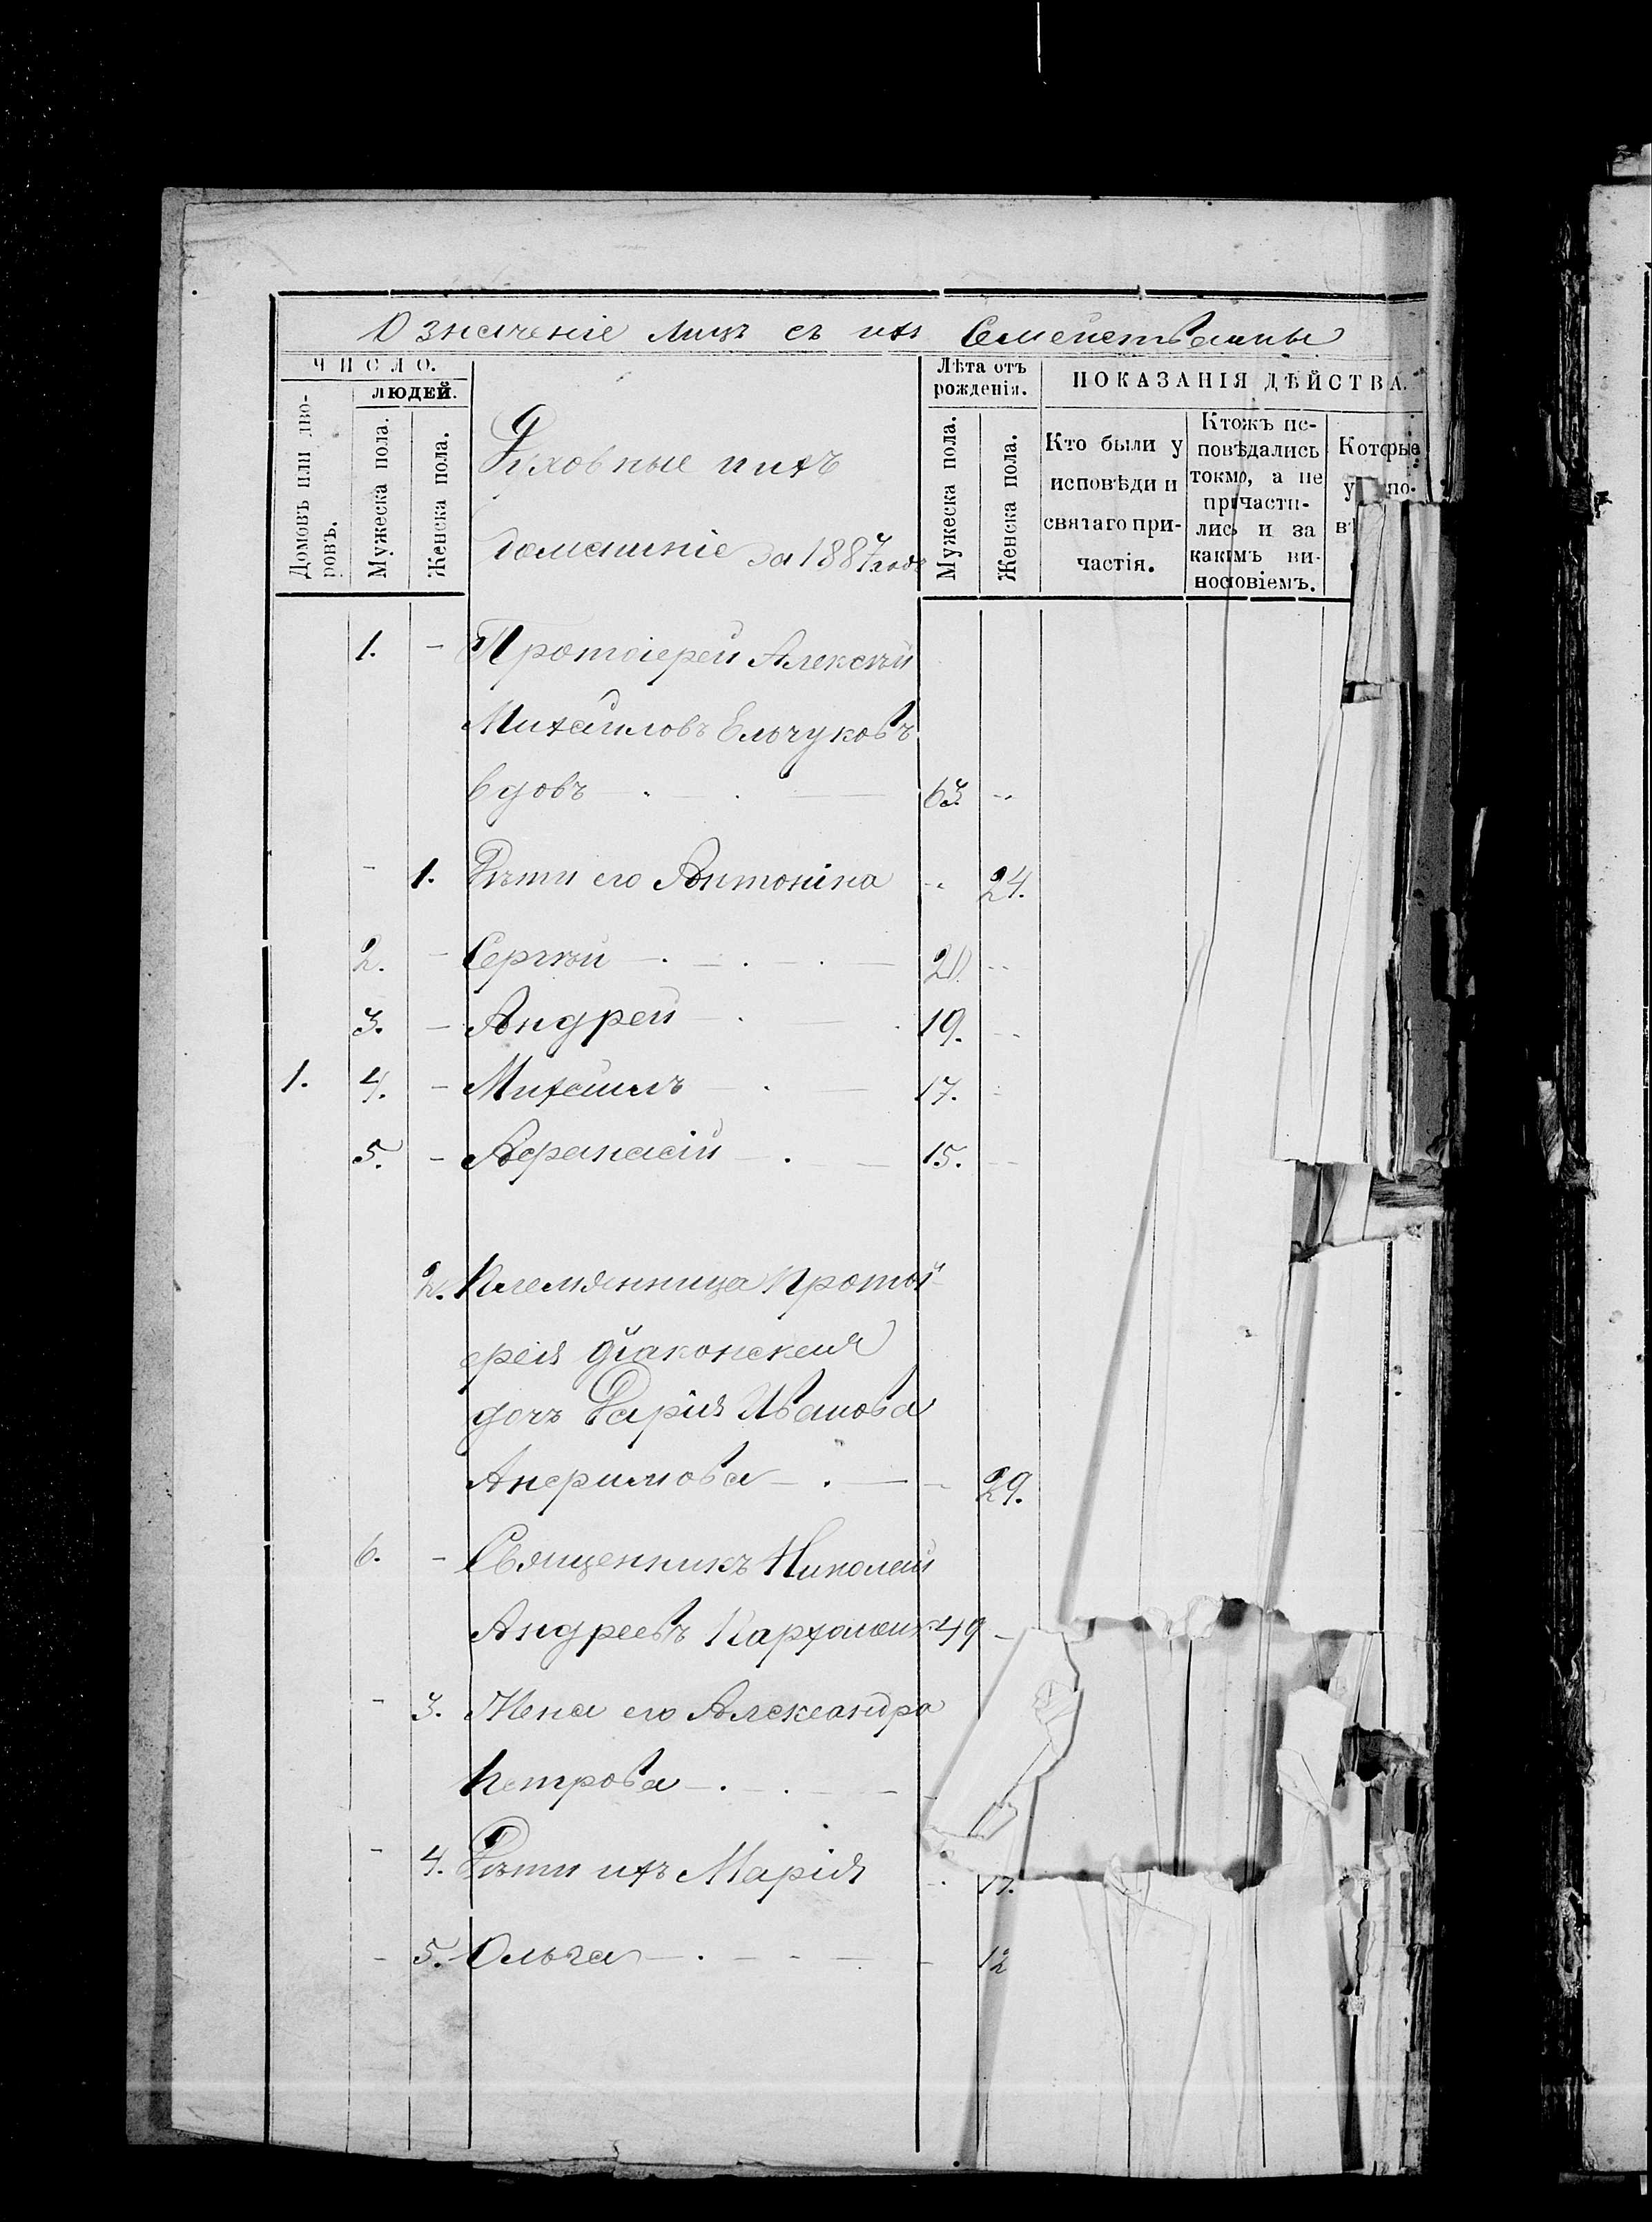 Означеніе лицъ съ ихъ Семействами
ЧИСЛО.
ЛЮДЕЙ.
Домовъ или дворовъ.
Мужеска пола.
Женска пола.
Духовные и ихъ
домашніе за 1887 годъ
Лѣта отъ
рожденія.
Мужеска пола.
Женска пола.
ПОКАЗАНІЯ ДѢЙСТВА.
Кто были у
исповѣди и
святаго при-
частія.
Ктожъ ис-
повѣдались
токмо, а не
причасти-
лись и за
какимъ ви-
нословіемъ.
Которые
1. - Протоіерей Алексѣй
Михайловъ Ельчуковъ
вдовъ - . - . - 63. -
- 1. Дѣти его Антонина - 24.
2. - Сергѣй - . - . - . - 21. -
3. - Андрей - . - . 19. -
1. 4. - Михаилъ - . - 17. -
5. - Афанасій - . - 15. -
2. Племянница Протоі-
ерея діаконская
дочь Дарія Иванова
Анфимова - . - - 29.
6. - Священникъ Николай
Андреевъ 49 -
- 3. Жена его Александра
Петрова - . - . -
- 4. Дѣти ихъ Марія - 17.
- 5. Ольга - . - - - - 12